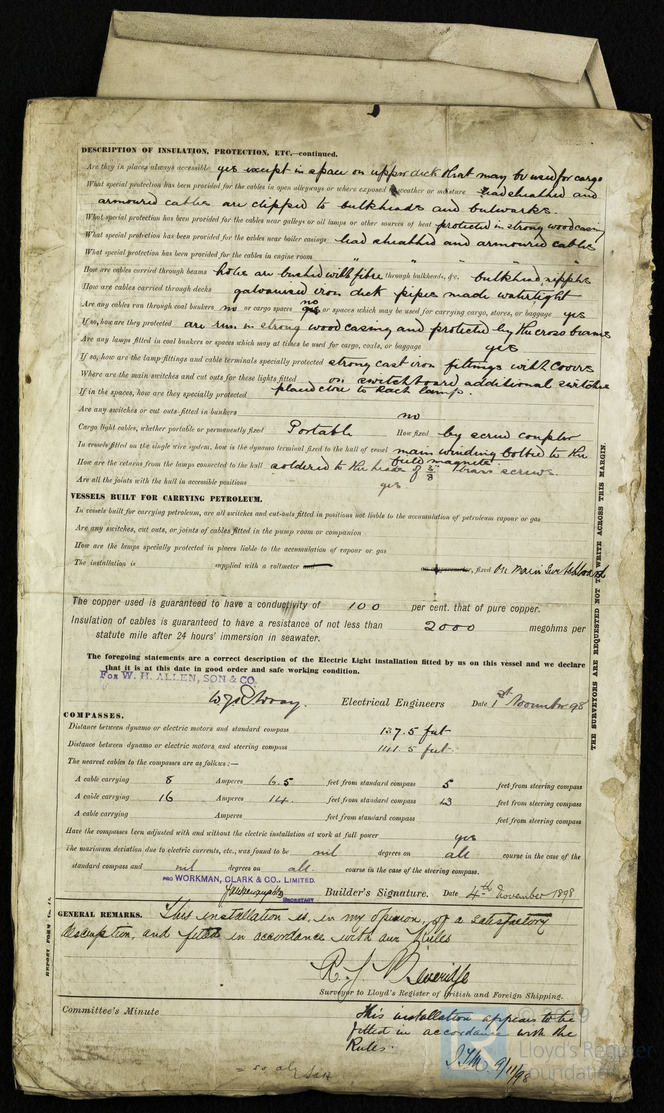 DESCRIPTION OF INSULATION, PROTECTION, ETC.—continued.
Are they in places always accessible yes except in space on upper deck that may be used for cargo
What special protection has been provided for the cables in open alleyways or where exposed to weather or moisture Lead sheathed and
armoured cables are clipped to bulkheads and bulwarks.
What special protection has been provided for the cables near galleys or oil lamps or other sources of heat protected in strong wood casing
What special protection has been provided for the cables near boiler casings lead sheathed and armoured cables
What special protection has been provided for the cables in engine room " " " "
How are cables carried through beams holes are bushed with fibre through bulkheads, &c. bulkhead nipples
How are cables carried through decks galvanised iron deck pipes made watertight
Are any cables run through coal bunkers no or cargo spaces no or spaces which may be used for carrying cargo, stores, or baggage yes
If so, how are they protected are run in strong wood casing and protected by the cross beams
Are any lamps fitted in coal bunkers or spaces which may at times be used for cargo, coals, or baggage yes
If so, how are the lamp fittings and cable terminals specially protected strong cast iron fittings with covers
Where are the main switches and cut outs for these lights fitted on switchboard, additional switches
If in the spaces, how are they specially protected placed close to each lamp.
Are any switches or cut outs fitted in bunkers no
Cargo light cables, whether portable or permanently fixed Portable How fixed by screw coupler
In vessels fitted on the single wire system, how is the dynamo terminal fixed to the hull of vessel main winding bolted to the
field magnets
How are the returns from the lamps connected to the hull soldered to the heads of 3/8" brass screws
Are all the joints with the hull in accessible positions yes
VESSELS BUILT FOR CARRYING PETROLEUM.
In vessels built for carrying petroleum, are all switches and cut-outs fitted in positions not liable to the accumulation of petroleum vapour or gas
Are any switches, cut outs, or joints of cables fitted in the pump room or companion
How are the lamps specially protected in places liable to the accumulation of vapour or gas
The installation is supplied with a voltmeter , fixed On Main Switchboard
The copper used is guaranteed to have a conductivity of 100 per cent. that of pure copper.
Insulation of cables is guaranteed to have a resistance of not less than 2000 megohms per
statute mile after 24 hours' immersion in seawater.
The foregoing statements are a correct description of the Electric Light installation fitted by us on this vessel and we declare
that it is at this date in good order and safe working condition.
FOR W. H. ALLEN, SON & CO.
Electrical Engineers Date 1st November 98
COMPASSES.
Distance between dynamo or electric motors and standard compass 137.5 feet
Distance between dynamo or electric motors and steering compass 141.5 feet.
The nearest cables to the compasses are as follows:—
A cable carrying 8 Amperes 6.5 feet from standard compass 5 feet from steering compass
A cable carrying 16 Amperes 14 feet from standard compass 13 feet from steering compass
A cable carrying Amperes feet from standard compass feet from steering compass
Have the compasses been adjusted with and without the electric installation at work at full power yes
The maximum deviation due to electric currents, etc., was found to be nil degrees on all course in the case of the
standard compass and nil degrees on all course in the case of the steering compass.
PRO WORKMAN, CLARK & CO., LIMITED.
SECRETARY
Builder's Signature. Date 4th November 1898
GENERAL REMARKS. This installation is, in my opinion, of a satisfactory
description, and fitted in accordance with our Rules
R. J. Beveridge
Surveyor to Lloyd's Register of British and Foreign Shipping.
Committee's Minute
This installation appears to be
fitted in accordance with the
Rules.
9/11/98
THE SURVEYORS ARE REQUESTED NOT TO WRITE ACROSS THIS MARGIN.
REPORT FORM No.
Lloyd's Register
Foundation